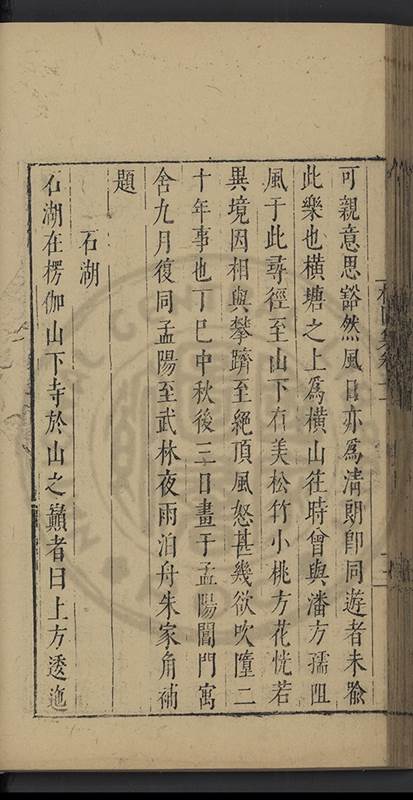 可親意思豁然風日亦爲清朗卽同遊者未喻
此樂也橫塘之上爲橫山往時曾與潘方孺阻
風于此尋徑至山下有美松竹小桃方花恍若
異境因相與攀躋至絕頂風怒甚幾欲吹墮二
十年事也丁巳中秋後三日畫于孟陽閶門寓
舍九月復同孟陽至武林夜雨泊舟朱家角補
題
石湖
石湖在楞伽山下寺於山之巔者曰上方逶迤